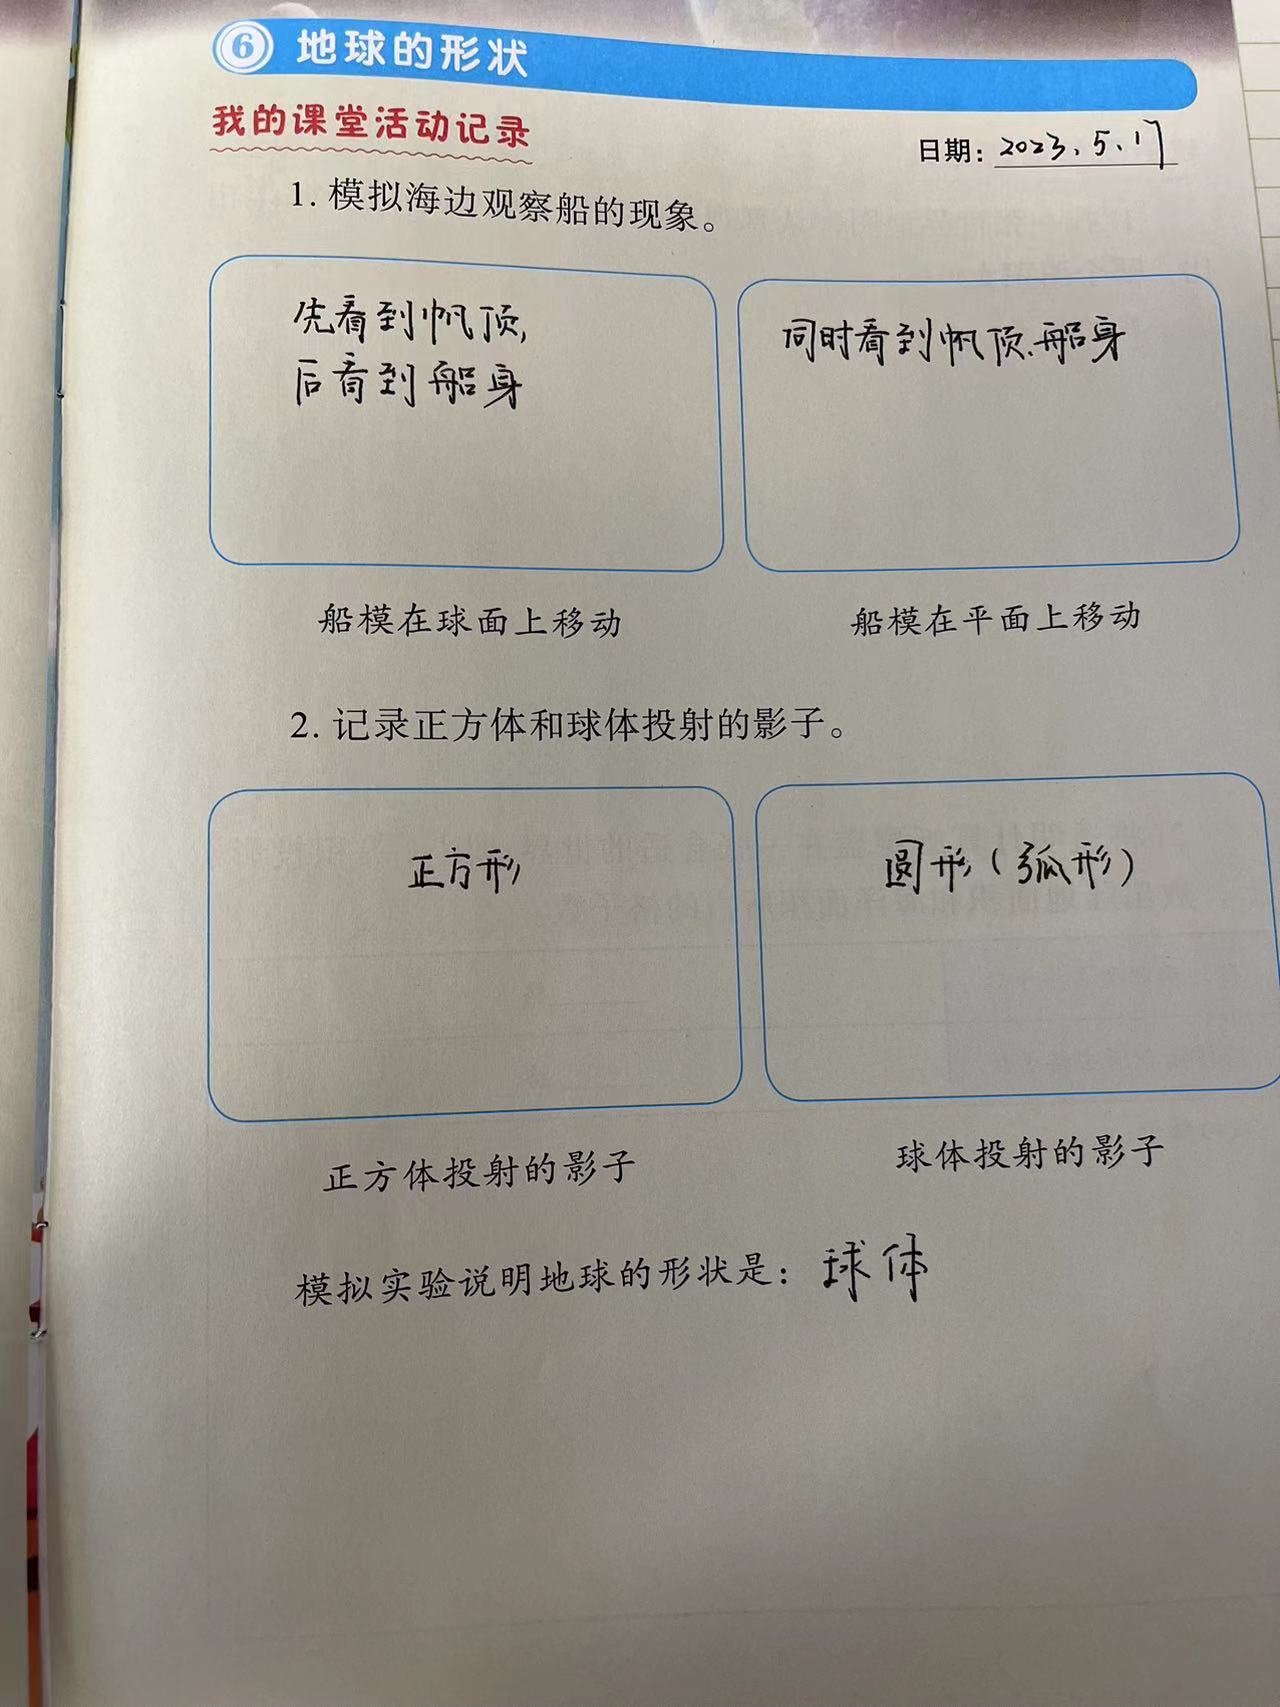 6 地球的形状
我的课堂活动记录
日期：2023.5.17
1. 模拟海边观察船的现象。
先看到帆顶,
后看到船身
同时看到帆顶、船身
船模在球面上移动
船模在平面上移动
2. 记录正方体和球体投射的影子。
正方形
圆形（弧形）
正方体投射的影子
球体投射的影子
模拟实验说明地球的形状是：球体